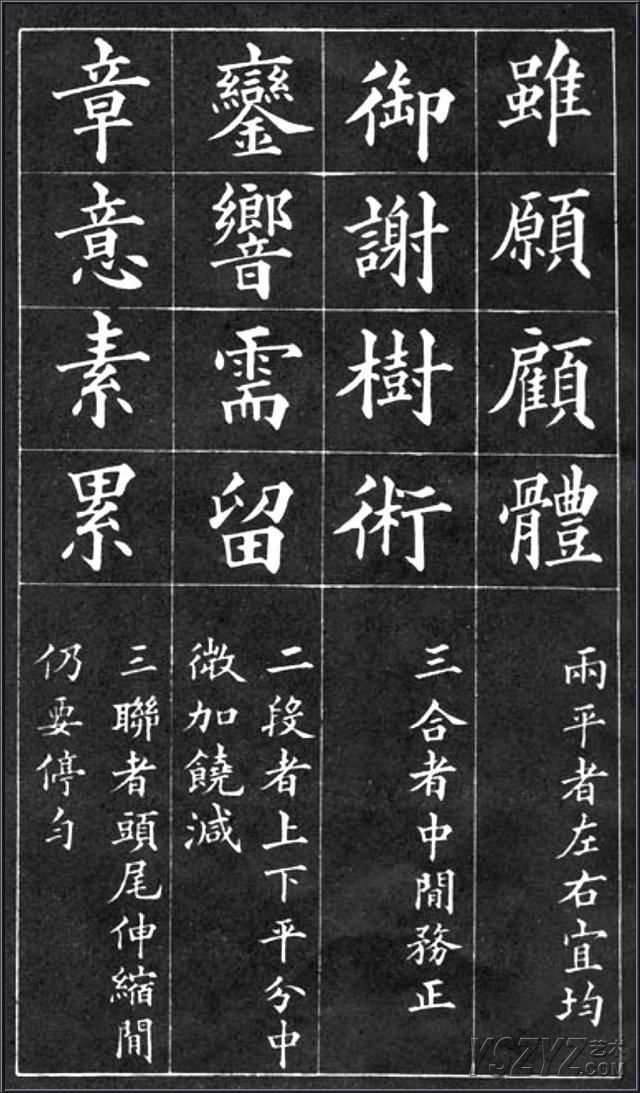 雖願顧體
兩平者左右宜均
御謝樹術
三合者中閒務正
鑾響需留
二段者上下平分中
微加饒減
章意素累
三聯者頭尾伸縮閒
仍要停勻
YSZYZ艺术
.COM